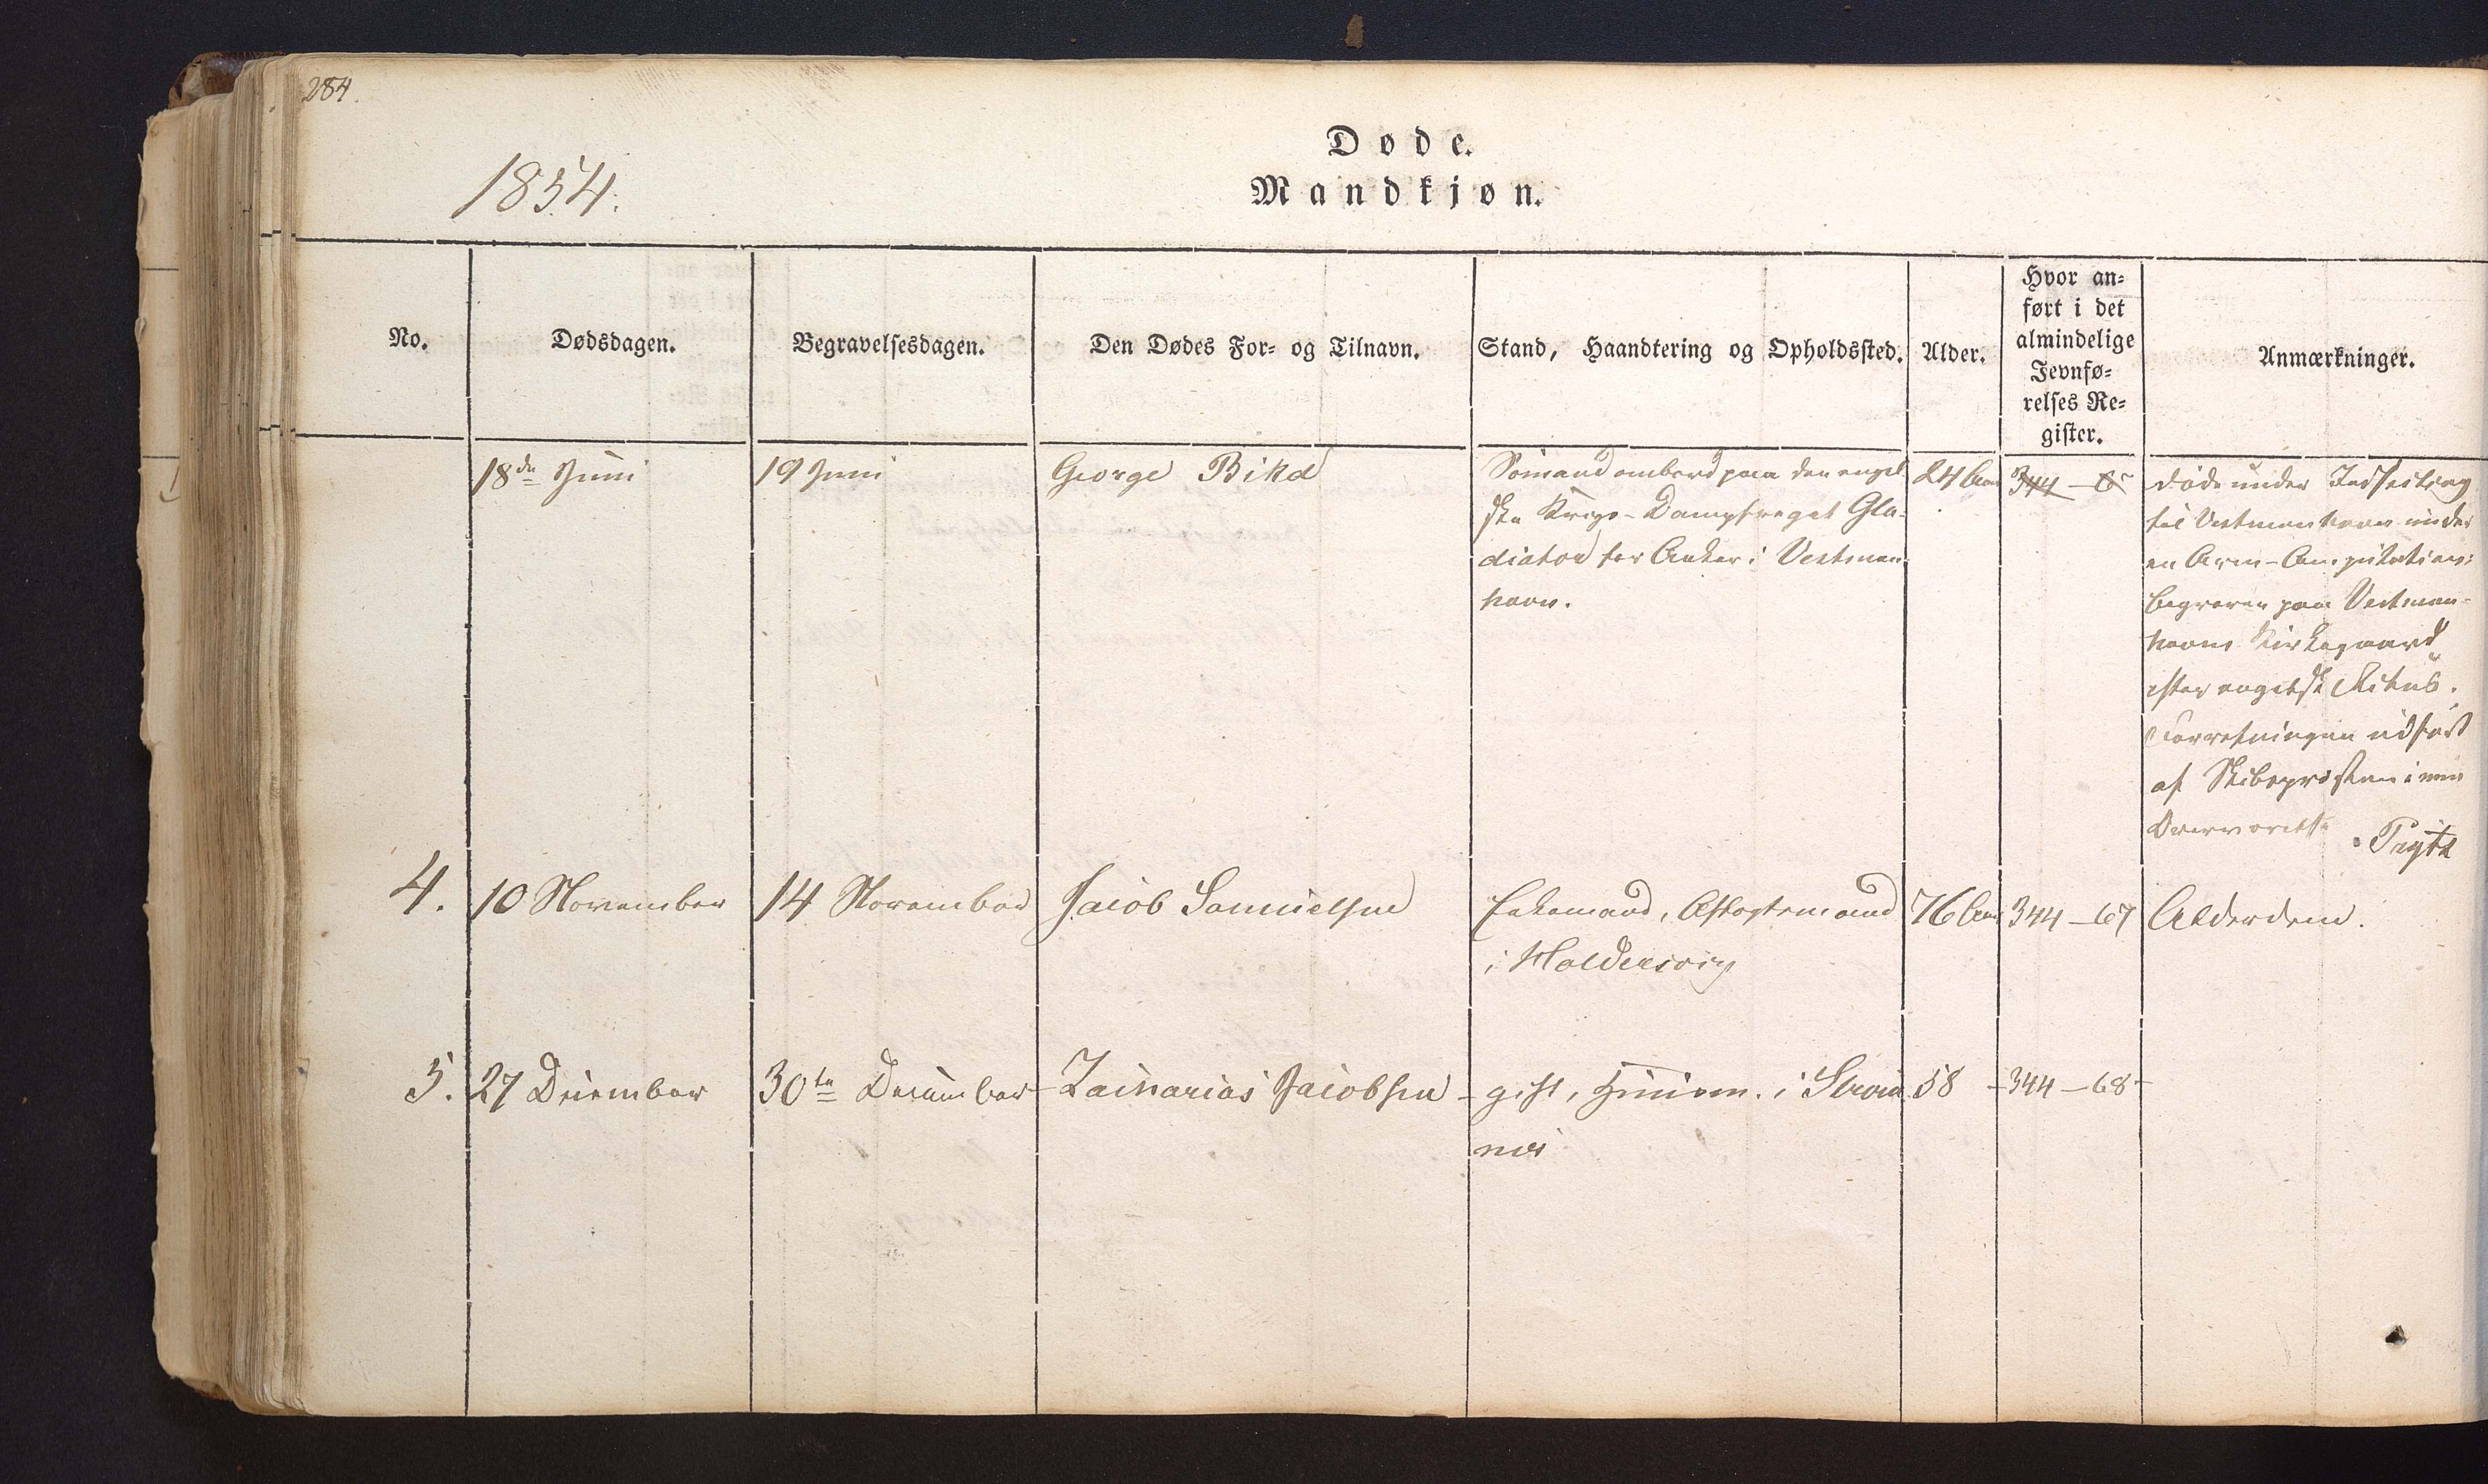 284.
1854.
Døde.
Mandkjøn.
No.
Dødsdagen.
Begravelsesdagen.
Den Dødes For- og Tilnavn.
Stand, Haandtering og Opholdssted.
Alder.
Hvor an-
ført i det
almindelige
Jevnfø-
relses Re-
gister.
Anmærkninger.
18de Juni
19 Juni
George
Sömand ombord paa den engel
ske Krigs-Dampfregat Gla-
diator for Anker i Vestman
havn.
24 Aar
344 - 6
döde under Indseiling
til Vestmanhavn under
en Arm-Amputation;
begraven paa Vestman-
havns Kirkegaard
efter engelsk Ritus.
Forretningen udfört
af Skibspræsten i min
Overværelse
4.
10 November
14 November
Jacob Samuelsen
Enkemand, Aftægtsmand
i Haldersvig
76 Aar
344 - 67
Alderdom.
5.
27 December
30te December
Zacharias Jacobsen
gift, Huusm. i Ström
næs
58
344 - 68